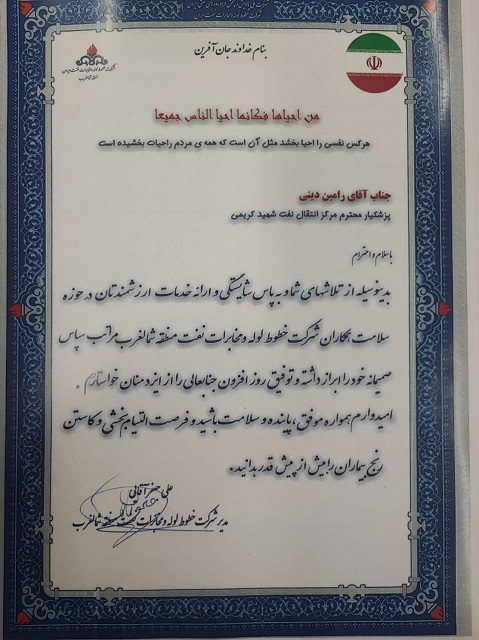 بنام خداوند جان آفرین
من احیاها فکانما احیا الناس جمیعا
هرکس نفسی را احیا بخشد مثل آن است که همه ی مردم راحیات بخشیده است
جناب آقای رامین دینی
پزشکیار محترم مرکز انتقال نفت شهید کریمی
باسلام و احترام
بدینوسیله از تلاشهای شما و به پاس شایستگی و ارائه خدمات ارزشمندتان در حوزه
سلامت همکاران شرکت خطوط لوله و مخابرات نفت منطقه شمالغرب مراتب سپاس
صمیمانه خود را ابراز داشته و توفیق روز افزون جنابعالی را از ایزد منان خواستارم .
امیدوارم همواره موفق ، پاینده و سلامت باشید و فرصت التیام بخشی و کاستن
رنج بیماران را بیش از پیش قدر بدانید.
علی جعفر آقائی
مدیر شرکت خطوط لوله و مخابرات نفت منطقه شمالغرب